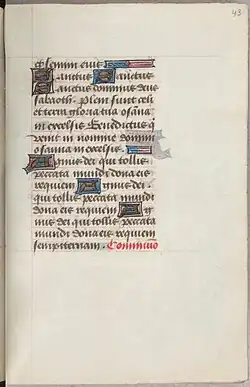 43
et semini eius
Sanctus Sanctus
Sanctus dominus deus
sabaoth. Pleni sunt celi
et terra gloria tua osãna
in excelsis Benedictus q
venit in nomine domini
osanna in excelsis.
Agnus dei qui tollis
peccata mundi dona eis
requiem Agnus dei.
qui tollis peccata mundi
dona eis requiem Ag
nus dei qui tollis peccata
mundi dona eis requiem
sempiternam. Communio